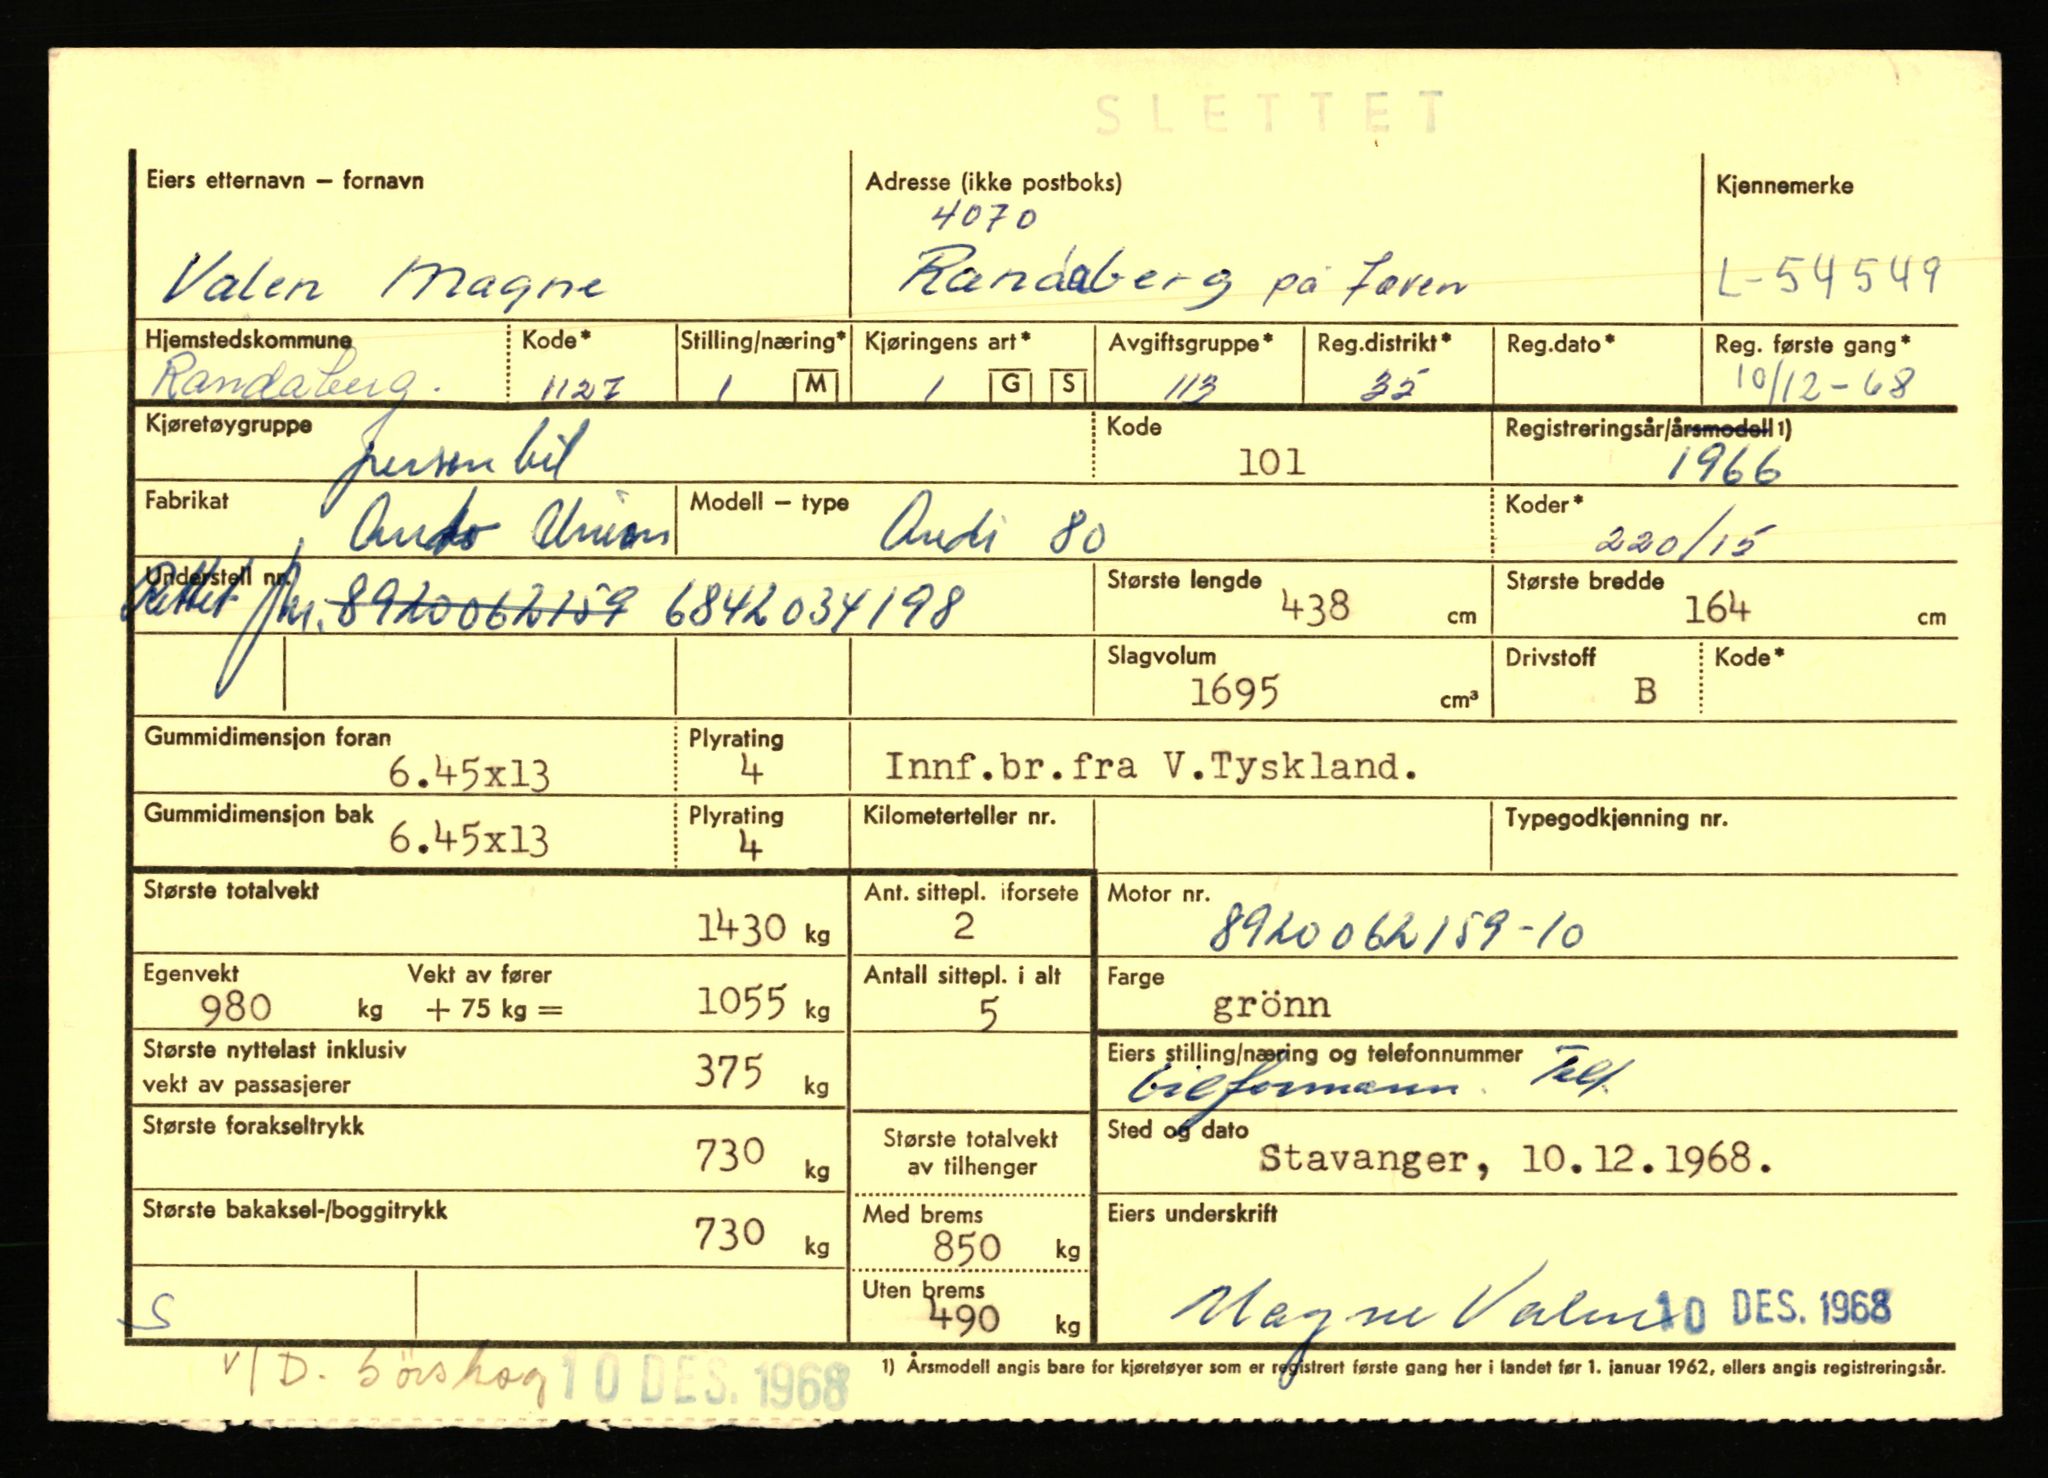 SLETTET
Eiers etternavn – fornavn Adresse (ikke postboks) Kjennemerke
4070
Valen Magne Randaberg på Jæren L-54549
Hjemstedskommune Kode* Stilling/næring* Kjøringens art* Avgiftsgruppe* Reg.distrikt* Reg.dato* Reg. første gang*
Randaberg. 1127 1 M 1 G S 113 35 10/12-68
Kjøretøygruppe Kode Registreringsår/årsmodell 1)
personbil 101 1966
Fabrikat Modell – type Koder*
Auto Union Audi 80 220/15
Understell nr. Største lengde Største bredde
Rettet nr. 8920062159 6842034198 438 cm 164 cm
Slagvolum Drivstoff Kode*
1695 cm³ B
Gummidimensjon foran Plyrating
6.45x13 4 Innf.br.fra V.Tyskland.
Gummidimensjon bak Plyrating Kilometerteller nr. Typegodkjenning nr.
6.45x13 4
Største totalvekt Ant. sittepl. iforsete Motor nr.
1430 kg 2 8920062159-10
Egenvekt Vekt av fører Antall sittepl. i alt Farge
980 kg + 75 kg = 1055 kg 5 grönn
Største nyttelast inklusiv Eiers stilling/næring og telefonnummer
vekt av passasjerer 375 kg Telf.
Største forakseltrykk Største totalvekt Sted og dato
730 kg av tilhenger Stavanger, 10.12.1968.
Største bakaksel-/boggitrykk Med brems Eiers underskrift
730 kg 850 kg
Uten brems
S 490 kg Magne Valen 10 DES. 1968
v/D. Sörskog 10 DES. 1968 1) Årsmodell angis bare for kjøretøyer som er registrert første gang her i landet før 1. januar 1962, ellers angis registreringsår.